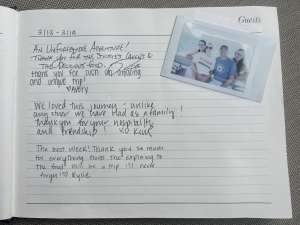 Guests
3/13 - 3/19
An Unforgettable Adventure!
Thank you for the
The Delicious Food.
Thank you for such an amazing
and unique trip!
♡ Avery
We loved this journey - unlike
any other we have had as a family!
Thank you for your hospitality
and friendship! XO
The best week! Thank you so much
for everything from the exploring to
the food. Will be a trip I'll never
forget! ♡ Kylie